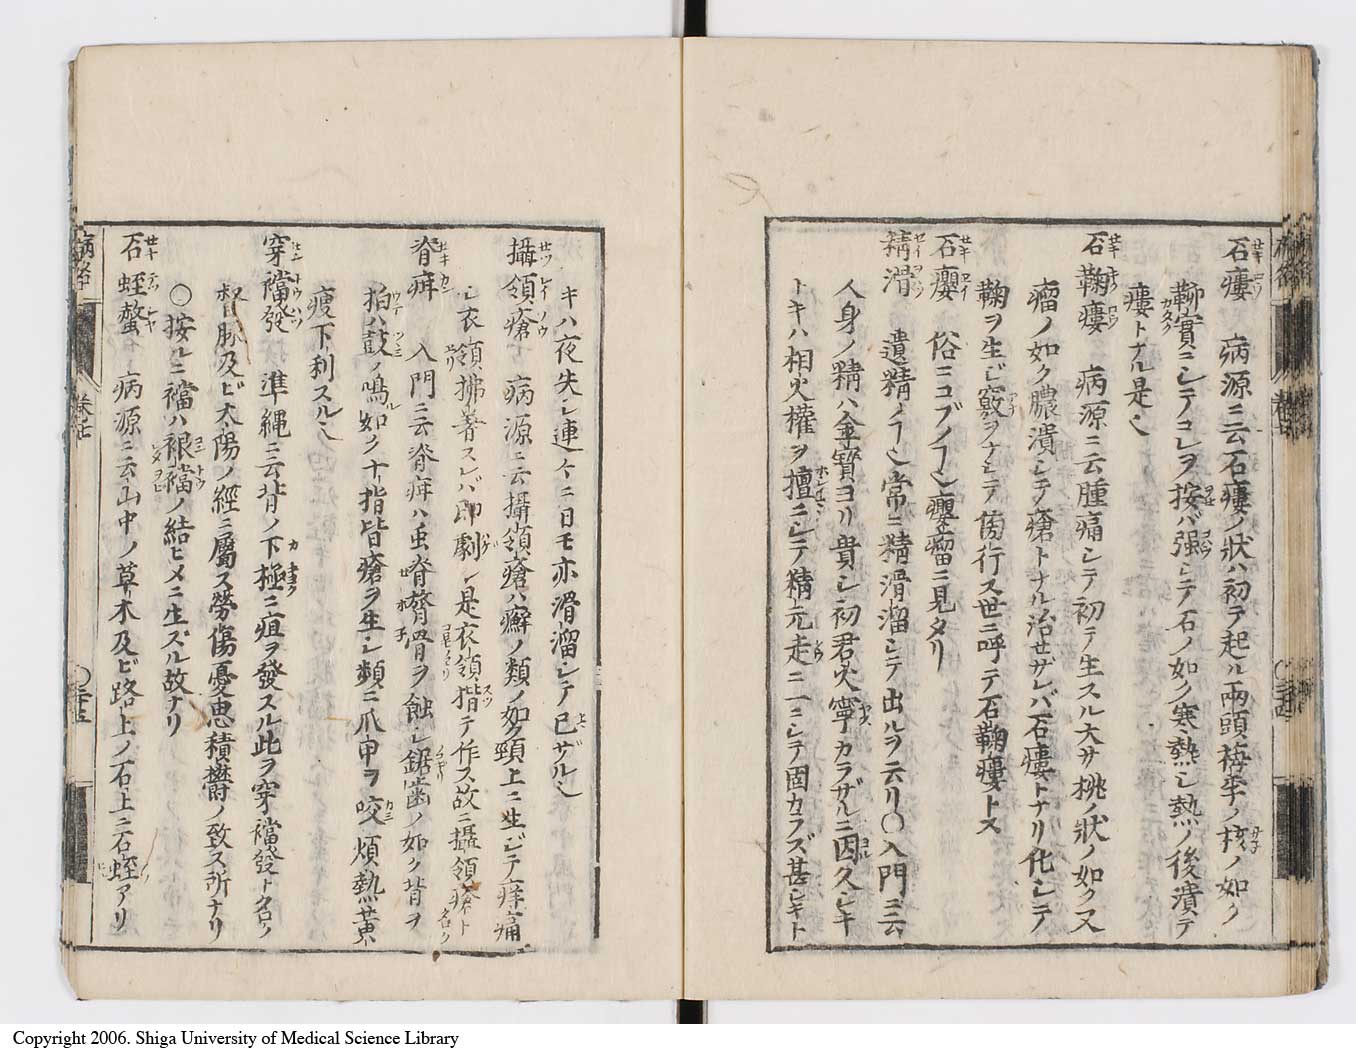 石瘻 病源ニ云石瘻ノ狀ハ初テ起ル兩頭梅李ノ核ノ如ク
鞕實ニシテコレヲ按バ强シテ石ノ如ク寒熱シ熱ノ後潰テ
瘻トナル是也
石鞠瘻 病源ニ云腫痛シテ初テ生スル大サ桃ノ狀ノ如ク又
瘤ノ如ク膿潰シテ瘡トナル治セザレバ石瘻トナリ化シテ
鞠ヲ生ジ竅ヲナシテ傍行ス世ニ呼テ石鞠瘻トス
石癭 俗ニコブノ癭瘤ニ見タリ
精滑 遺精ノ常ニ精滑溜シテ出ルヲ云リ○入門ニ云
人身ノ精ハ金寶ヨリ貴シ初君火寧カラザルニ因久シキ
トキハ相火權ヲ擅ニシテ精元走一一ニシテ固カラズ甚シキト
キハ夜失シ連ケニ日モ亦滑溜シテ已ザル也
攝領瘡 病源ニ云攝領瘡ハ癬ノ類ノ如ク頸上ニ生ジテ痒痛
シ衣領拂著スレバ即劇シ是衣領揩テ作ス故ニ攝領瘡ト名ク
脊疳 入門ニ云脊疳ハ虫脊膂骨ヲ蝕シ鋸齒ノ如ク背ヲ
拍ハ鼓ノ鳴如ク十指皆瘡ヲ生シ類ニ爪甲ヲ咬煩熱黃
瘦下利スル也
穿襠發 準繩ニ云背ノ下極ニ疽ヲ發スル此ヲ穿襠發ト名ク
督脉及ビ太陽ノ經ニ屬ス勞傷憂思積欝ノ致ス所ナリ
○按ルニ襠ハ裩襠ノ結ヒメニ生ズル故ナリ
石蛭螫 病源ニ云山中ノ草木及ビ路上ノ石上ニ石蛭アリ
病名
○三十五
Copyright 2006. Shiga University of Medical Science Library